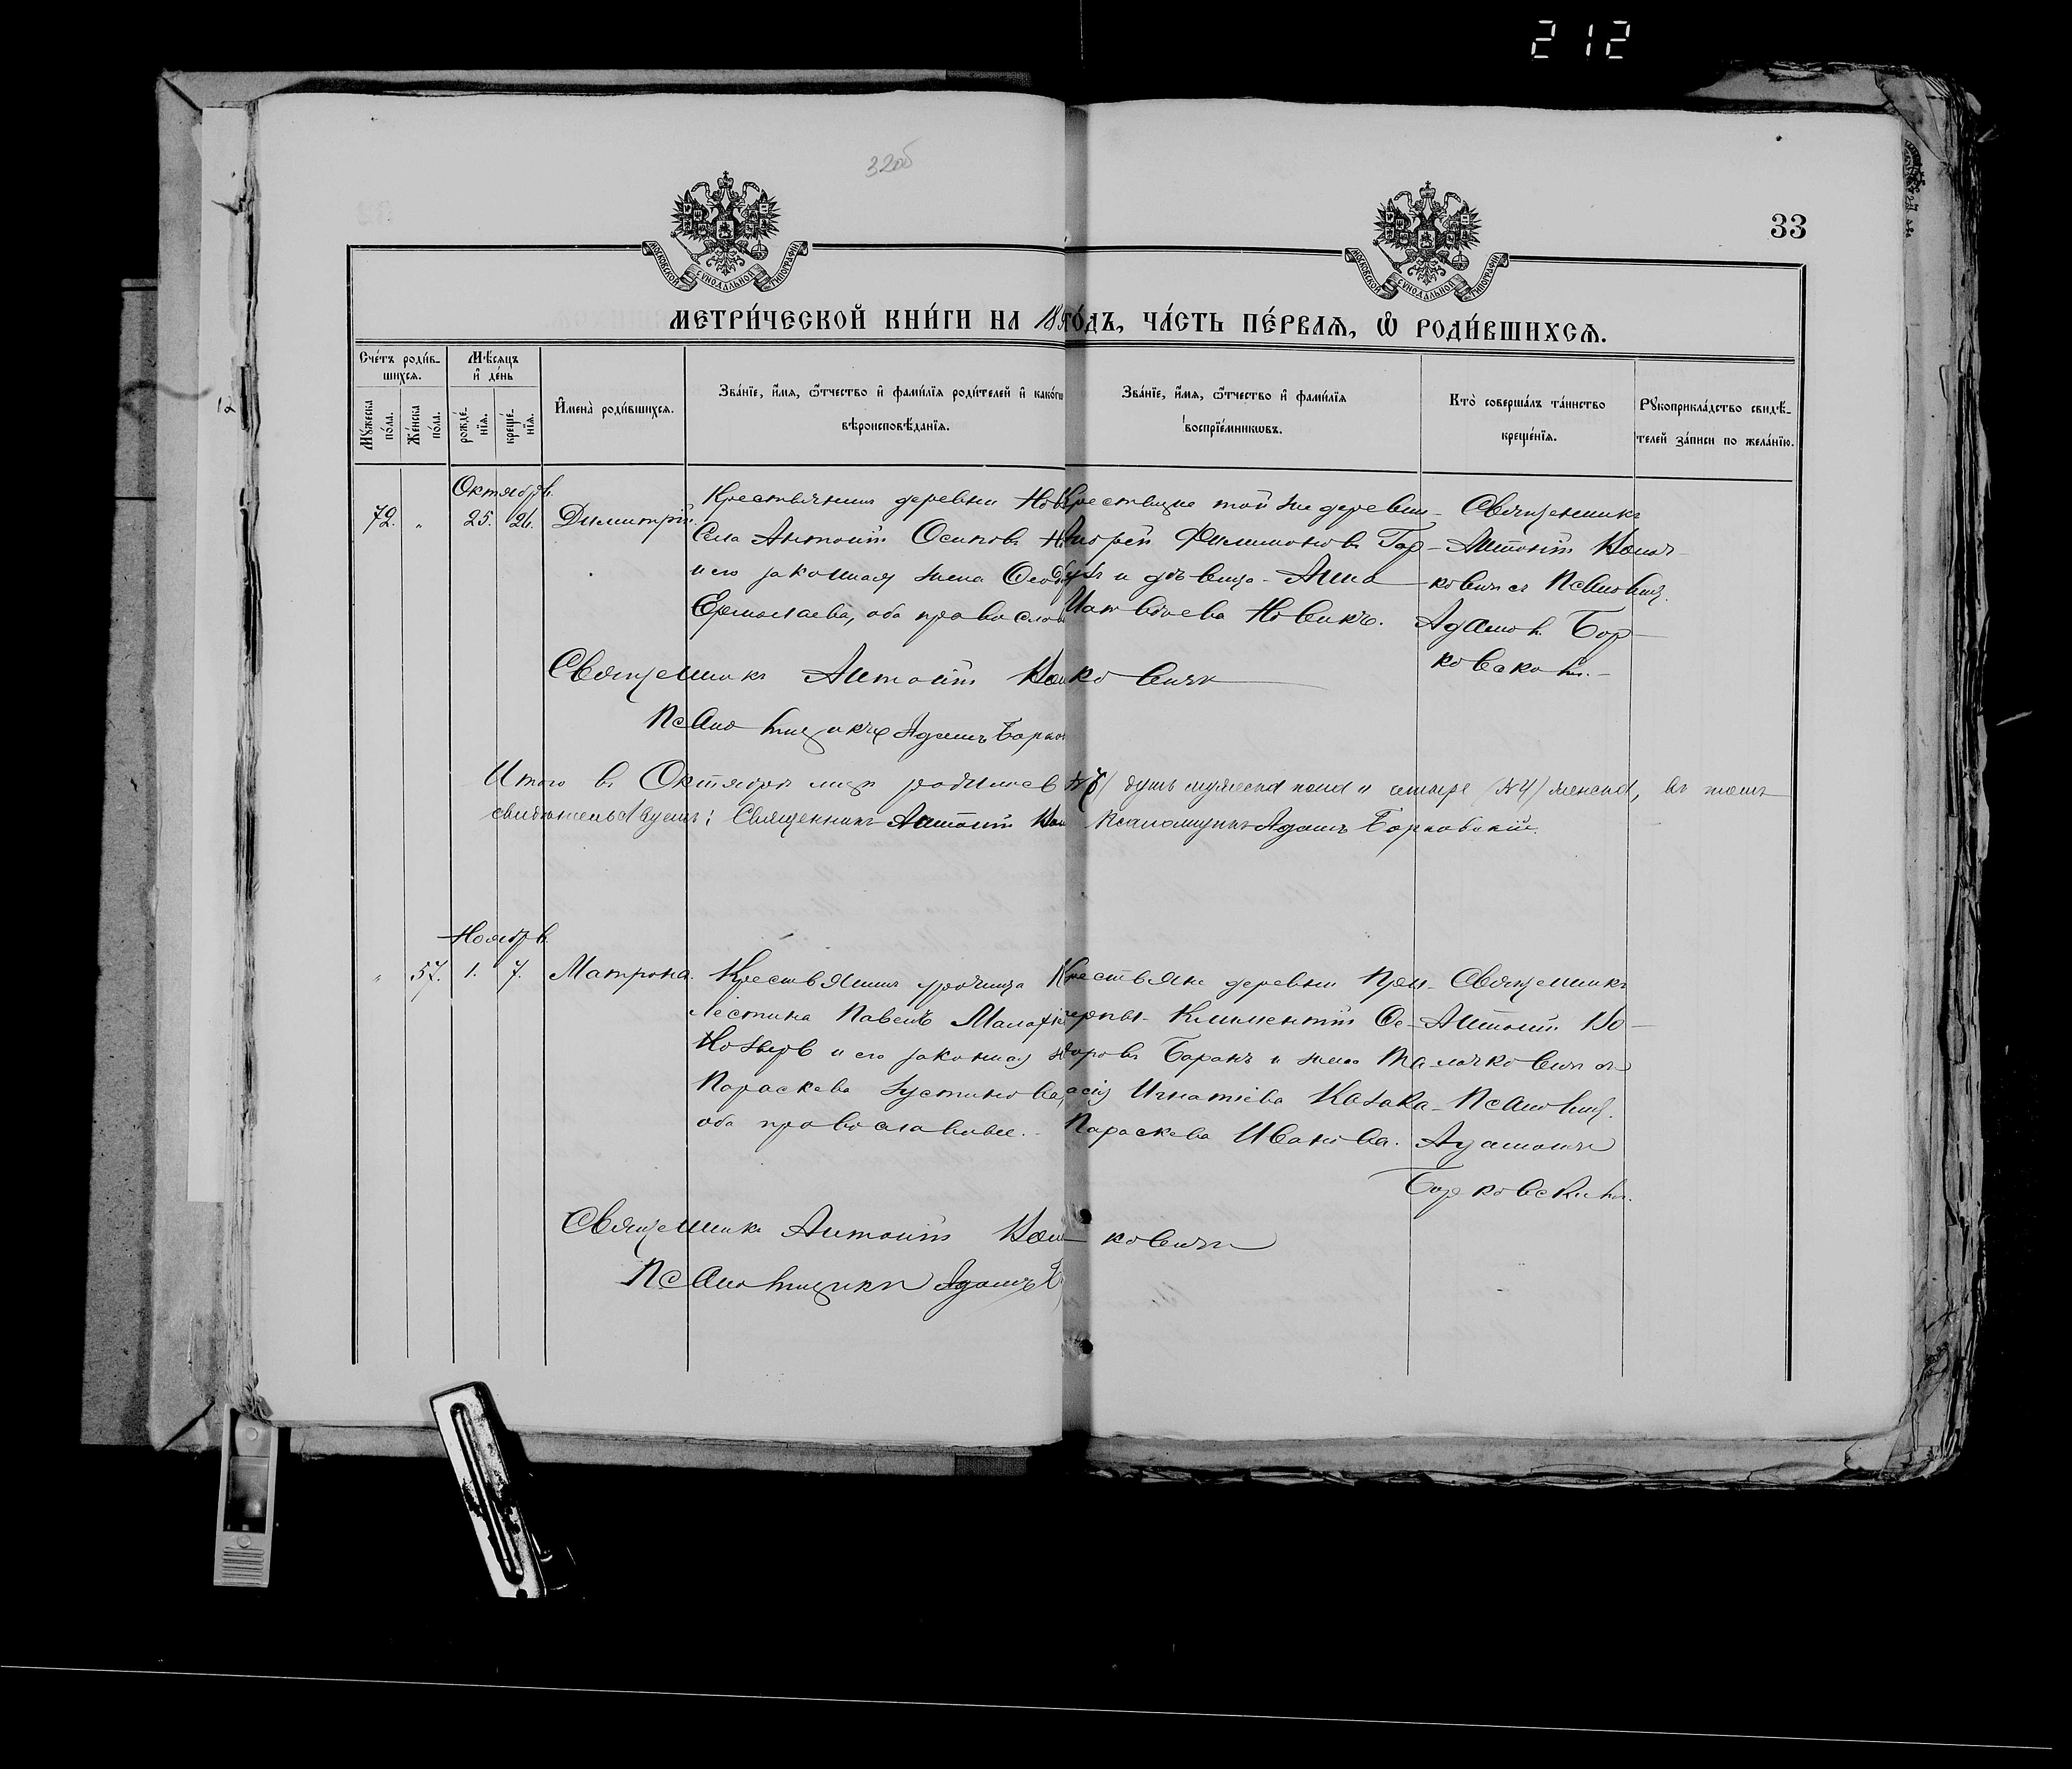 212
32об
33
МОСКОВСКОЙ СѴНОДАЛЬНОЙ ТИПОГРАФІИ
МОСКОВСКОЙ СѴНОДАЛЬНОЙ ТИПОГРАФІИ
МЕТРИ́ЧЕСКОЙ КНИ́ГИ НА 189 ГО́ДЪ, ЧА́СТЬ ПЕ́РВАѦ, Ѡ РОДИ́ВШИХСѦ.
Сче́тъ роди́в-
шихсѧ.
Мꙋ́жеска по́ла.
Же́нска по́ла.
Мѣ́сѧцъ и де́нь
рожде́нїѧ.
креще́нїѧ.
Имена̀ роди́вшихсѧ.
Зва́нїе, и́мѧ, ѻ҆́тчество и фами́лїѧ роди́телей и како́гѡ
вѣроисповѣ́данїѧ.
Зва́нїе, и́мѧ, ѻ҆́тчество и фами́лїѧ
воспрїе́мникѡвъ.
Кто̀ соверша́лъ та́инство
креще́нїѧ.
Рꙋкоприкла́дство свидѣ́-
телей за́писи по жела́нїю.
12
Октябрь.
72. " 25. 26. Димитрій.
Крестьянинъ деревни Нов
Села Антоній Осиповъ Н
и его законная жена
Ермолаева, оба правослов
Крестьяне той же деревни
Андрей Филимоновъ Гор-
и дѣвица Анна
Матвѣева Новикъ.
Священникъ
Антоній
ковичъ съ Псаломщ.
Адамомъ Бор-
ковскимъ.
Священникъ Антоній ковичъ
Псаломщикъ Адамъ Борков
Итого въ Октябрѣ мцѣ родилось душъ мужеска пола и четыре (№ 4) женска, въ томъ
свидѣтельствуемъ: Священникъ Антоній Псаломщикъ Адамъ Борковскій.
Ноябрь.
" 57. 1. 7. Матрона.
Крестьянинъ урочища
Лестина Павелъ Малафі
и его законная ж
Параскева Іустинова,
оба православные.
Крестьяне деревни
Климентій Ѳе-
доровъ Баранъ и жена
Игнатіева Козака
Параскева Иванова.
Священникъ
Антоній
ковичъ съ
Псаломщ.
Адамомъ
Борковскимъ.
Священникъ Антоній ковичъ
Псаломщикъ Адамъ Б